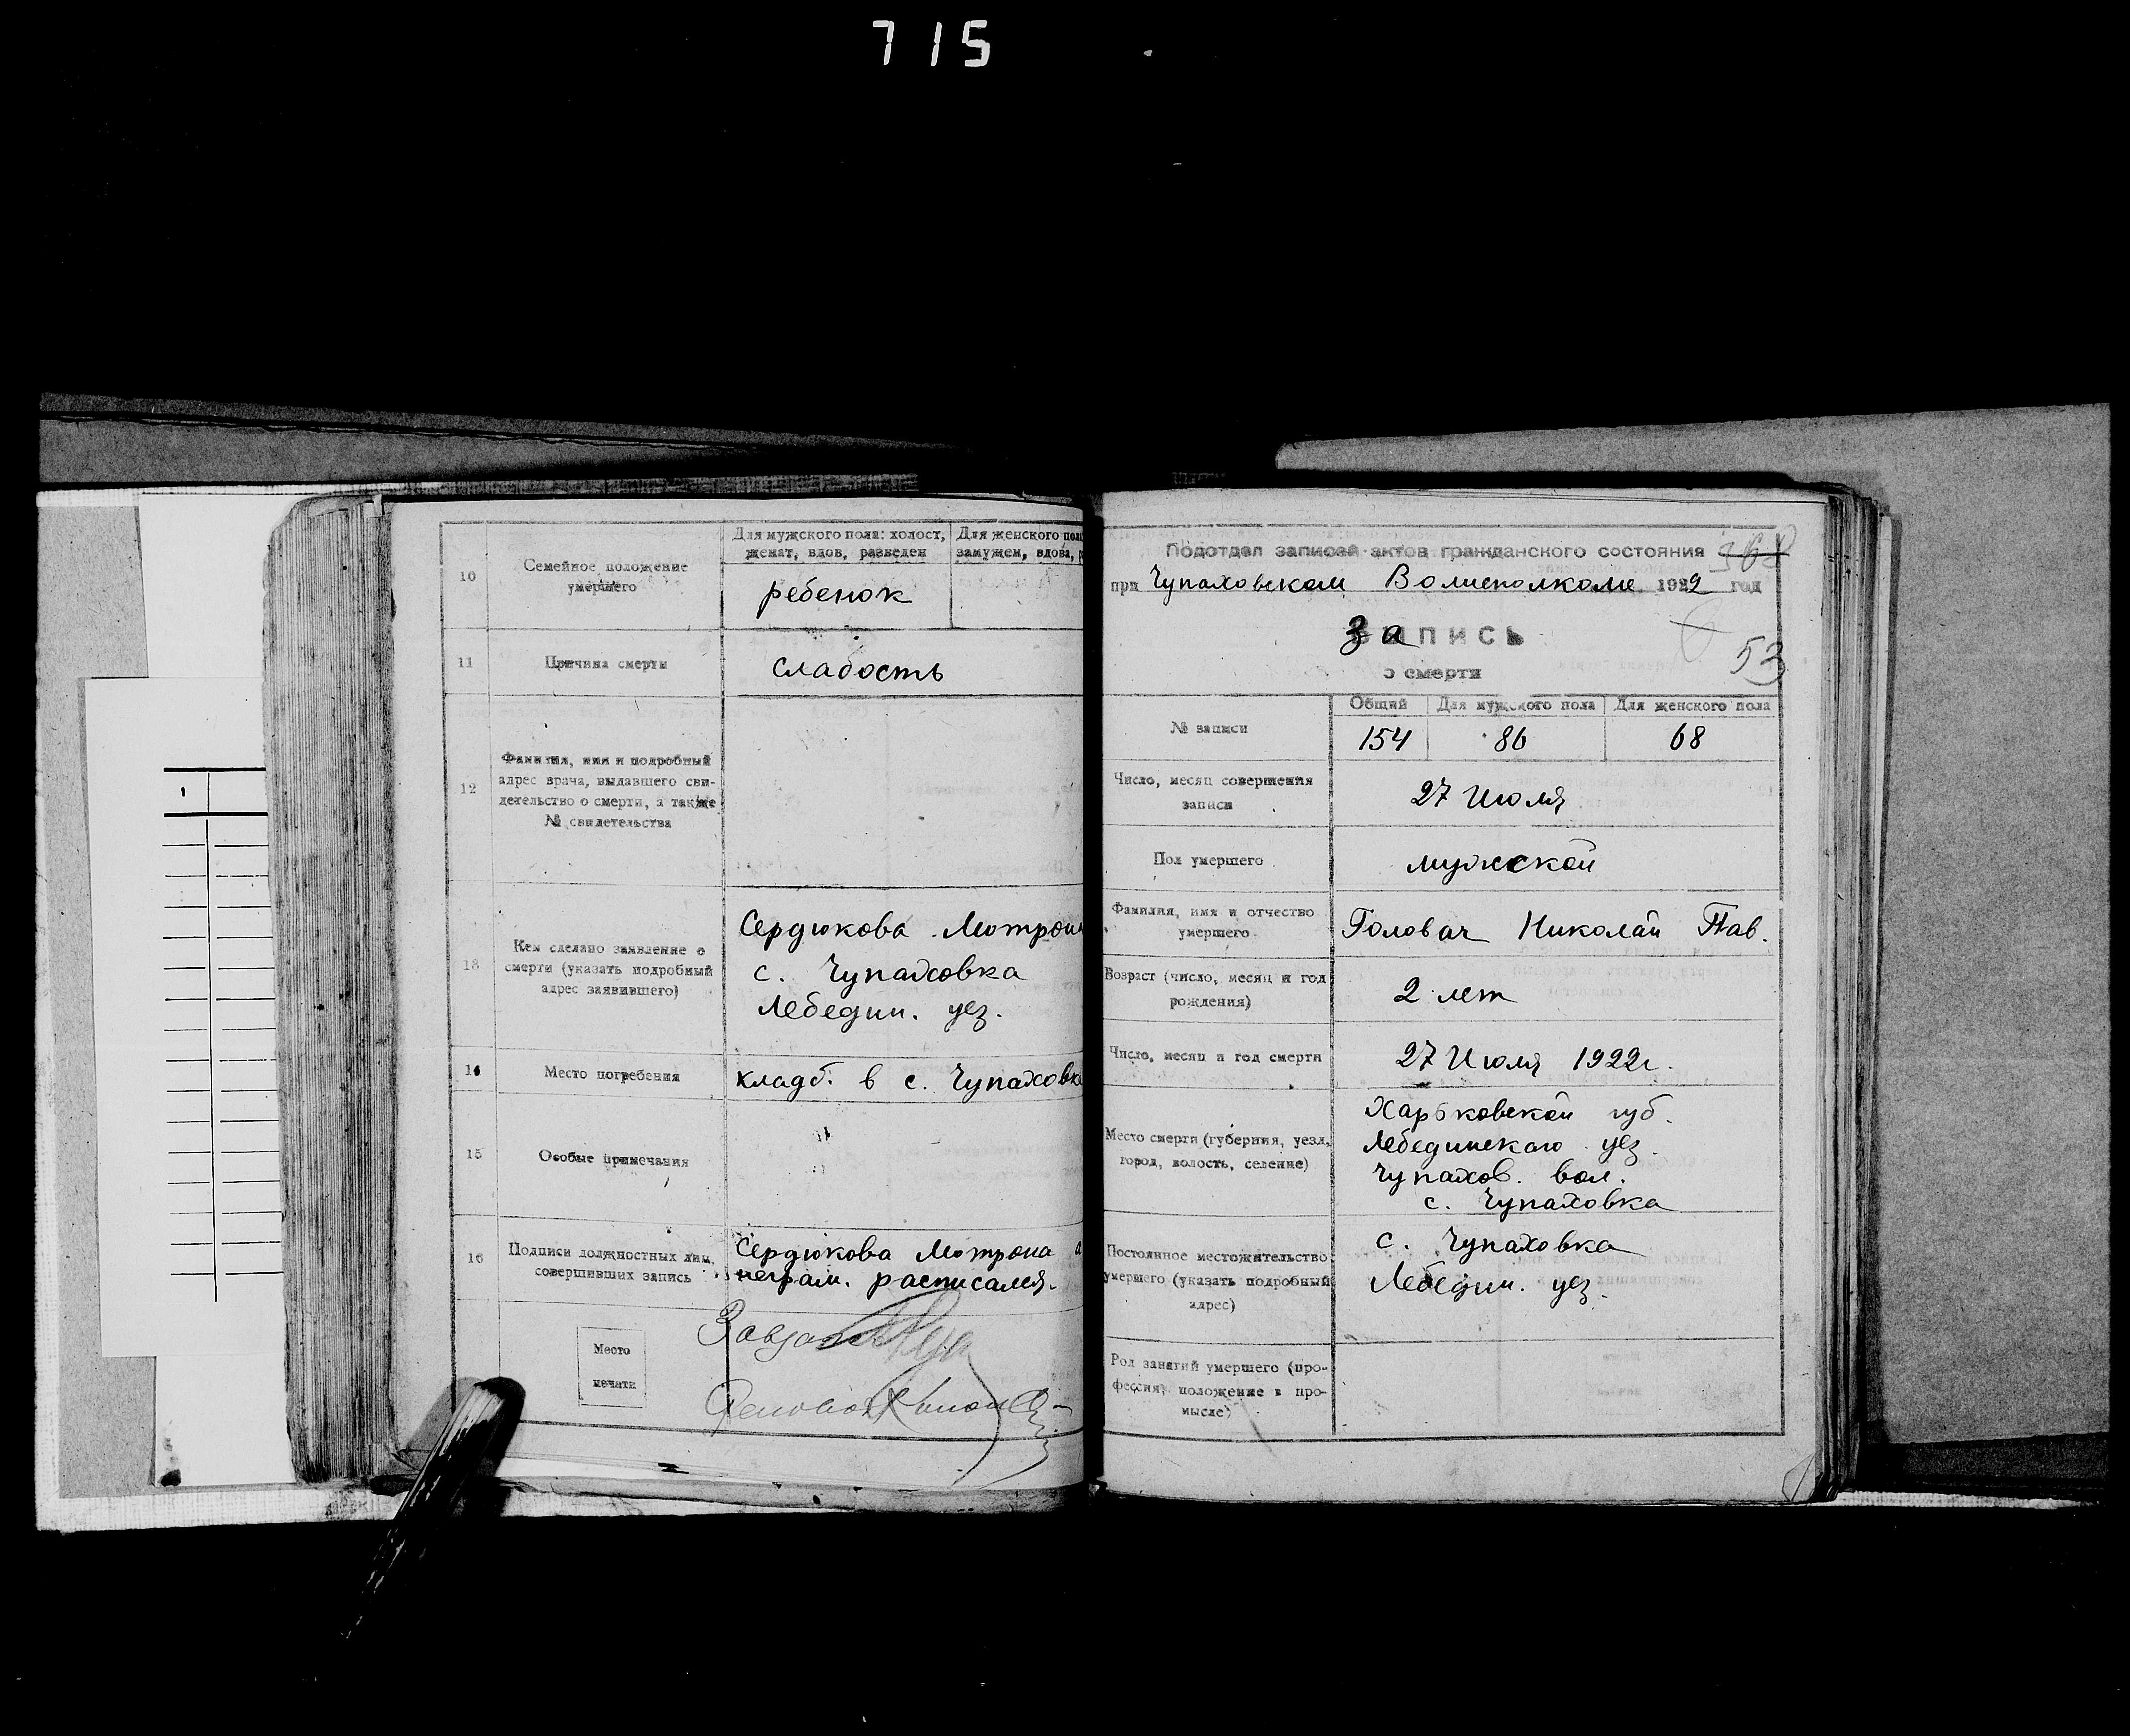 715
10
Семейное положение
умершего
Для мужского пола: холост,
женат, вдов, разведен
Для женского пол
замужем, вдова, р
ребенок
11
Причина смерти
слабость
12
Фамилия, имя и подробный
адрес врача, выдавшего сви-
детельство о смерти, а также
№ свидетельства
13
Кем сделано заявление о
смерти (указать подробный
адрес заявившего)
Сердюкова Мотрон
с. Чупаховка
Лебедин. уез.
14
Место погребения
кладб. в с. Чупаховк
15
Особые примечания
16
Подписи должностных лиц,
совершивших запись
Сердюкова Мотрона а
неграм. расписался.
Место
печати
Подотдел записей актов гражданского состояния
при Чупаховском Волисполкоме 1922 год
Запись
о смерти
53
№ записи
Общий
Для мужского пола
Для женского пола
154
86
68
Число, месяц совершения
записи
27 Июля
Пол умершего
мужской
Фамилия, имя и отчество
умершего
Головач Николай Пав.
Возраст (число, месяц и год
рождения)
2 лет
Число, месяц и год смерти
27 Июля 1922г.
Место смерти (губерния, уезд,
город, волость, селение)
Харьковской губ.
Лебединскаго уез.
Чупахов. вол.
с. Чупаховка
Постоянное местожительство
умершего (указать подробный
адрес)
с. Чупаховка
Лебедин. уез.
Род занятий умершего (про-
фессия, положение в про-
мысле)
1